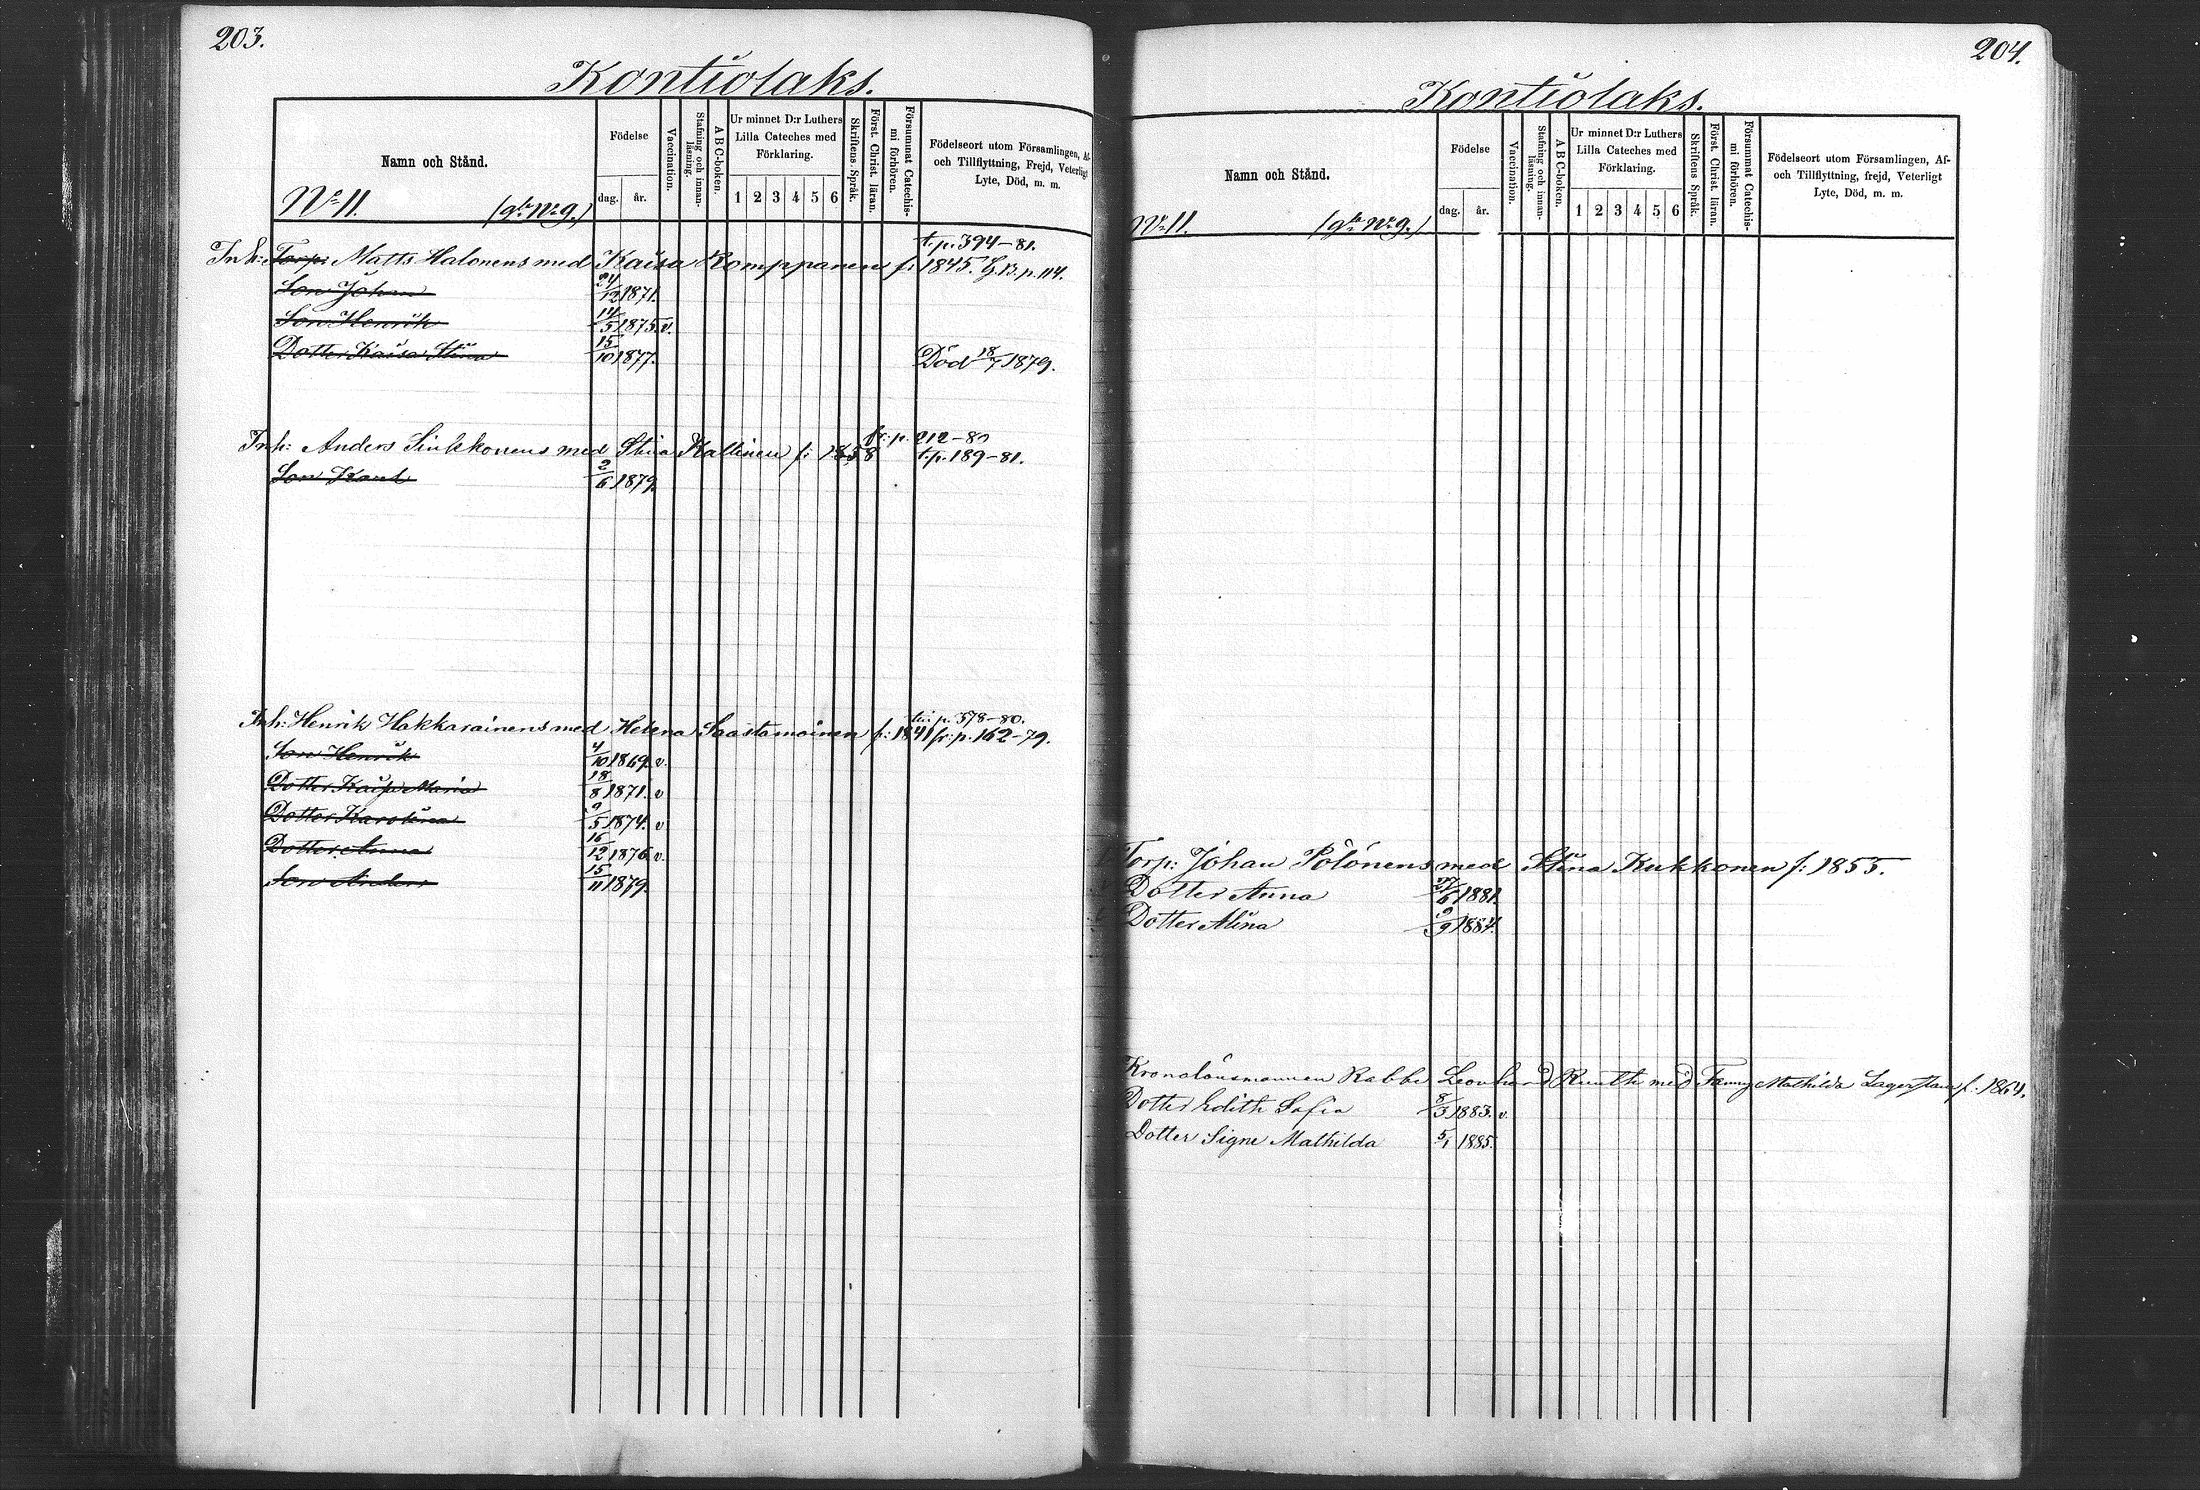 203.
Kontiolaks.
Namn och Stånd.
Födelse
dag. år.
Vaccination.
Stafning och innanläsning.
ABC-boken.
Ur minnet D:r Luthers Lilla Cateches med Förklaring.
1 2 3 4 5 6
Skriftens Språk.
Först. Christ. läran.
Försummat Catechismi förhören.
Födelseort utom Församlingen, Af- och Tillflyttning, Frejd, Veterligt Lyte, Död, m. m.
No 11. (gla No 9.)
t. p. 394-81.
Inh: Torp: Matts Halonens med Kaisa Romppanen f: 1845. H.B. p. 114.
Son Johan 24/12 1871.
Son Henrik 14/5 1875. v.
Dotter Kaisa Stina 15/10 1877. Död 18/7 1879.
fr. p. 212-80
Inh: Anders Sinkkonens med Stina Kallinen f: 1858 t. p. 189-81.
Son Karl 2/6 1879.
till p. 378-80.
Inh: Henrik Hakkarainens med Helena Saastamoinen f: 1841 fr: p. 162-79.
Son Henrik 4/10 1869. v.
Dotter Kaisa Maria 18/8 1871. v
Dotter Karolina 9/5 1874. v
Dotter Anna 16/12 1876. v.
Son Anders 15/11 1879.
204.
Kontiolaks.
Namn och Stånd.
Födelse
dag. år.
Vaccination.
Stafning och innanläsning.
ABC-boken.
Ur minnet D:r Luthers Lilla Cateches med Förklaring.
1 2 3 4 5 6
Skriftens Språk.
Först. Christ. läran.
Försummat Catechismi förhören.
Födelseort utom Församlingen, Af- och Tillflyttning, frejd, Veterligt Lyte, Död, m. m.
No 11. (gla No 9.)
Torp: Johan Pölönens med Stina Kukkonen f: 1855.
Dotter Anna 1881.
Dotter Alina 9/9 1884.
Kronolänsmannen Rabbe Leonhard Runth med Fanny Mathilda Lagerstam f. 1864.
Dotter Edith Sofia 8/3 1883. v.
Dotter Signe Mathilda 5/1 1885.